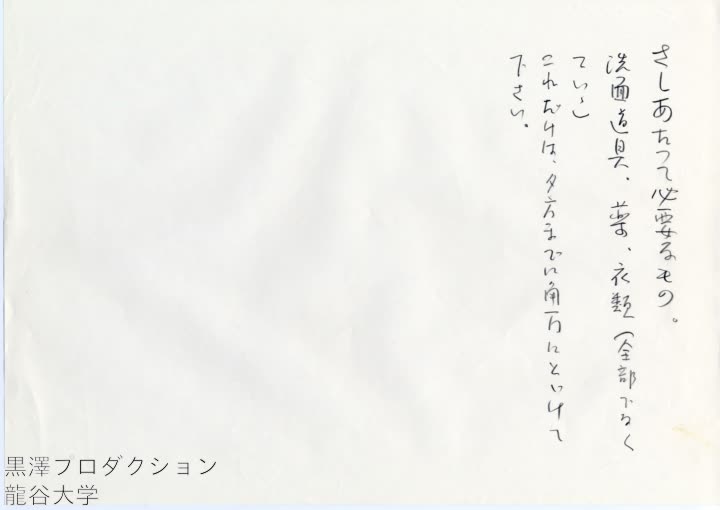 さしあたって必要なもの。
洗面道具、薬、衣類(全部でなく
ていゝ)
これだけは、夕方までに角万にとゞけて
下さい。
黒澤プロダクション
龍谷大学